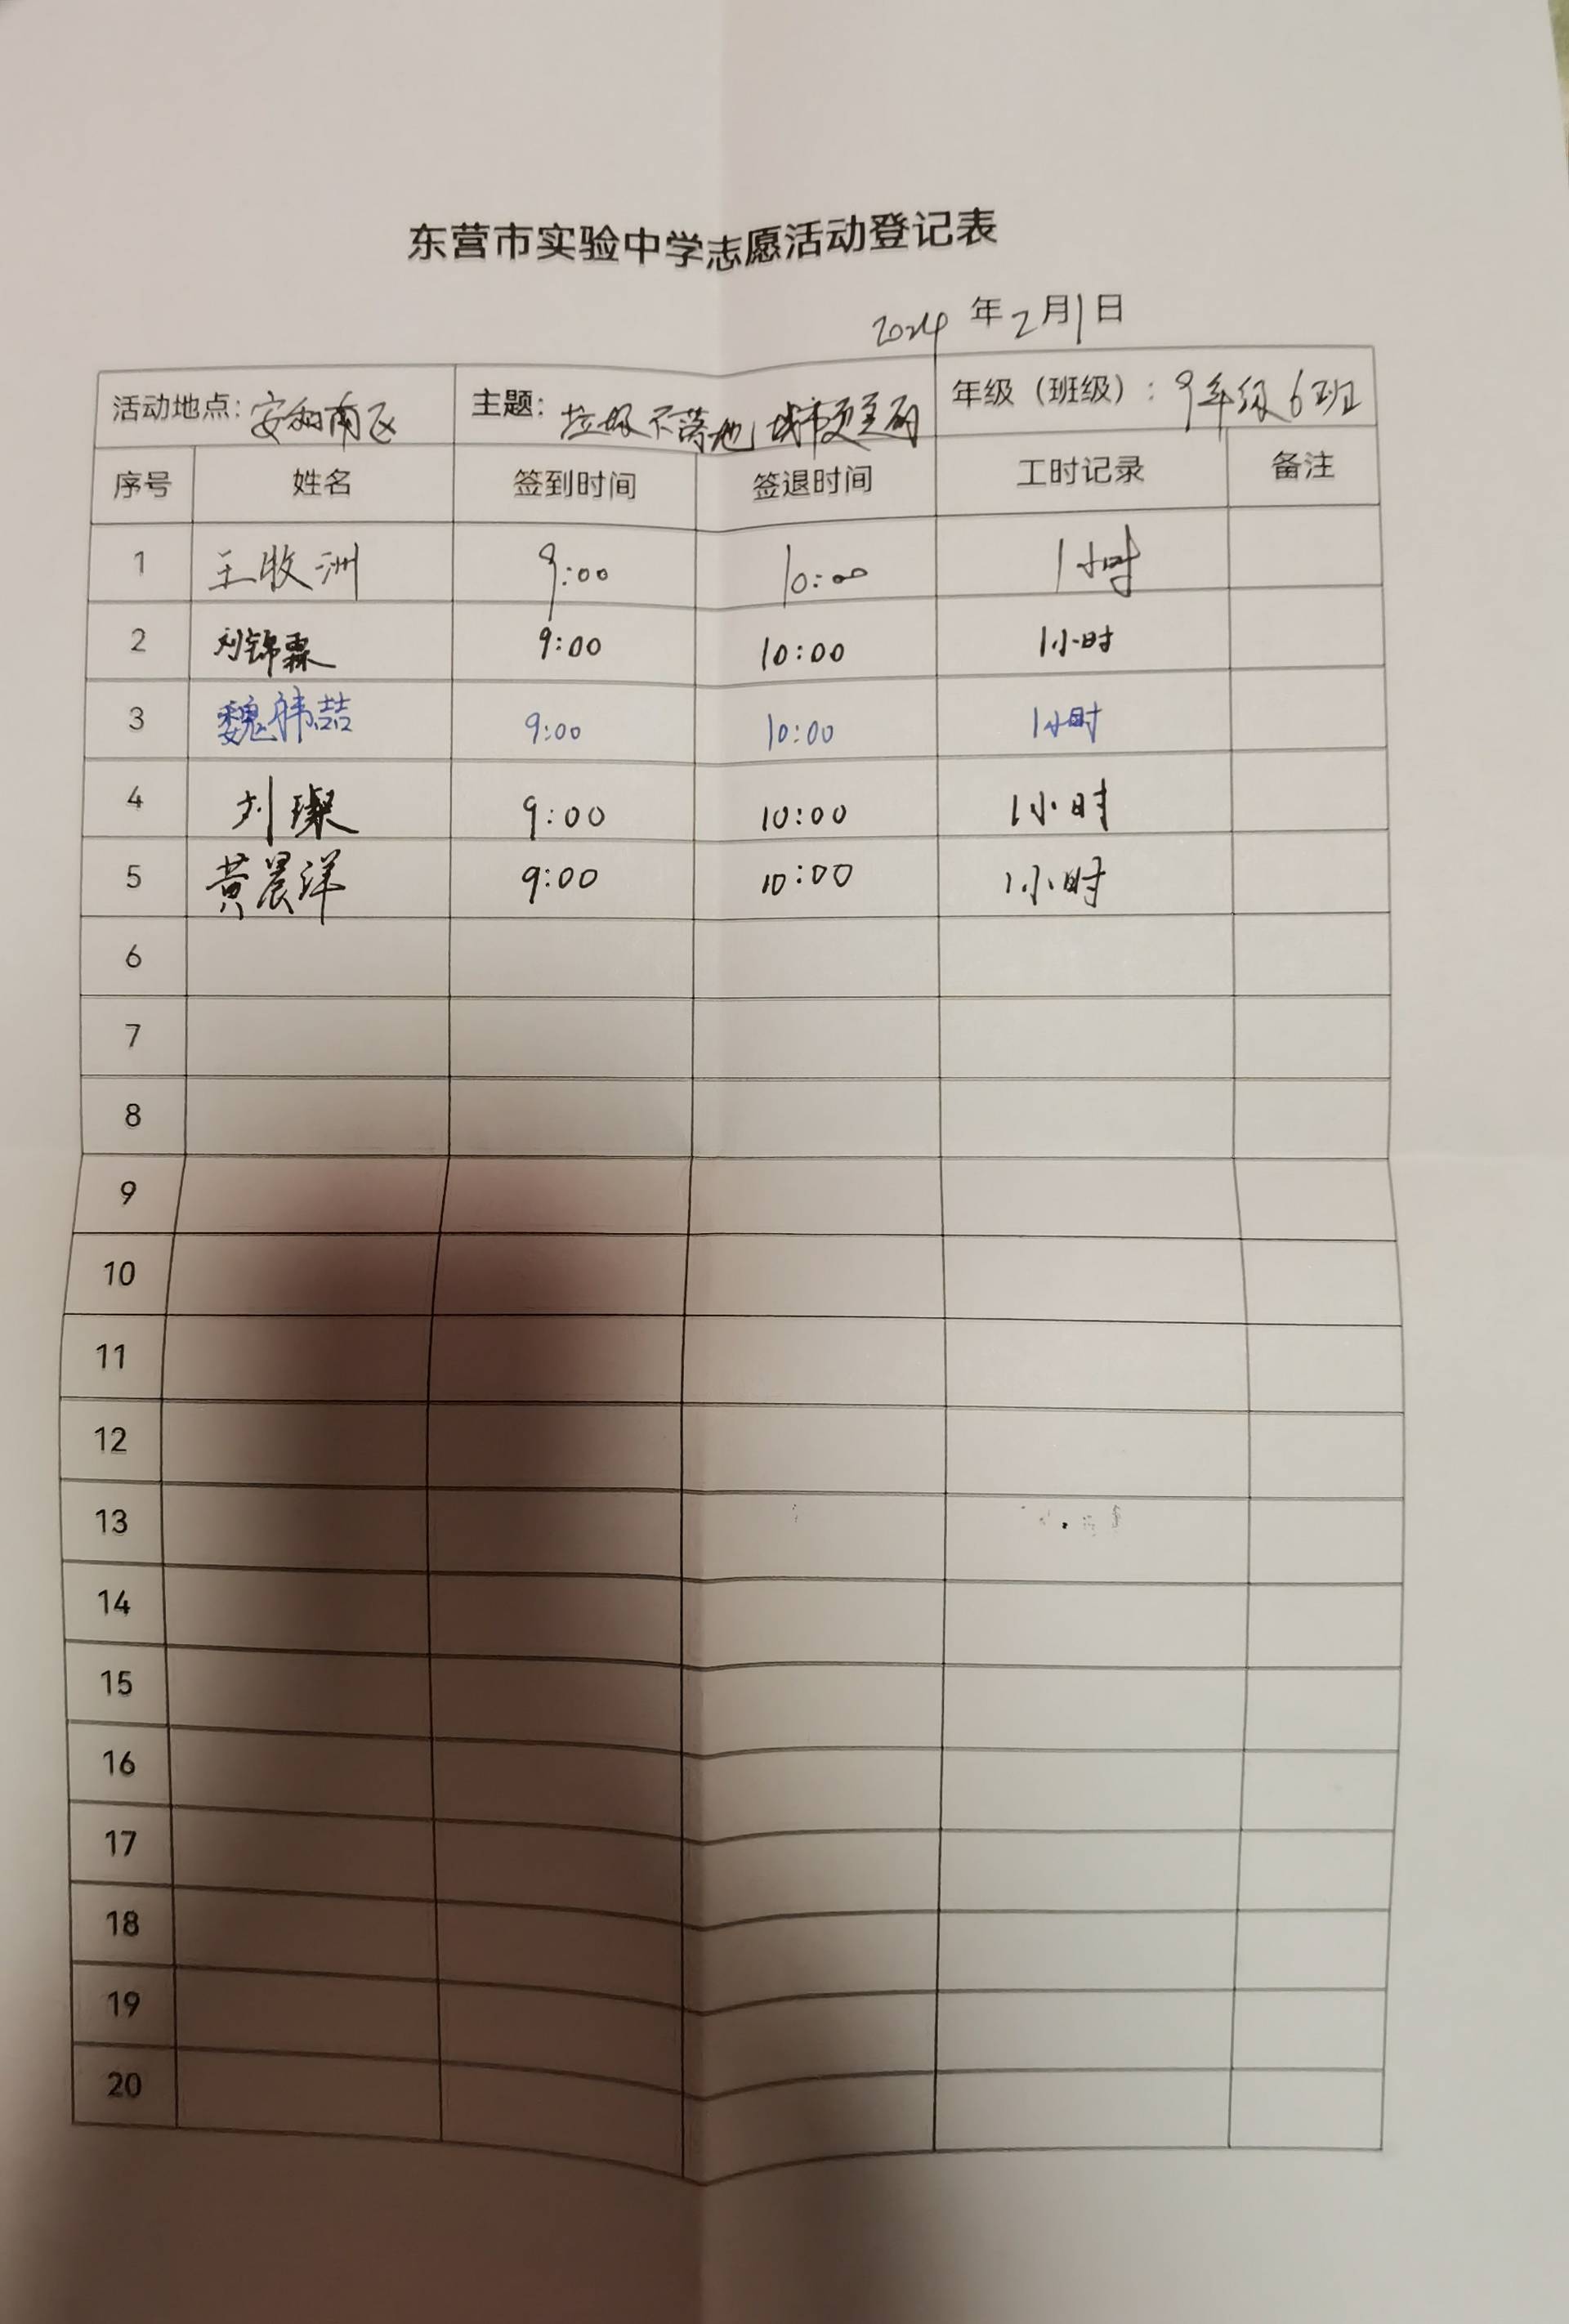 东营市实验中学志愿活动登记表
2024 年 2 月 1 日
活动地点: 安和南区 主题: 垃圾不落地 城市更美丽 年级（班级）: 9年级6班
序号 姓名 签到时间 签退时间 工时记录 备注
1 王牧洲 9:00 10:00 1小时
2 刘锦霖 9:00 10:00 1小时
3 魏祎喆 9:00 10:00 1小时
4 刘璨 9:00 10:00 1小时
5 黄晨洋 9:00 10:00 1小时
6
7
8
9
10
11
12
13
14
15
16
17
18
19
20